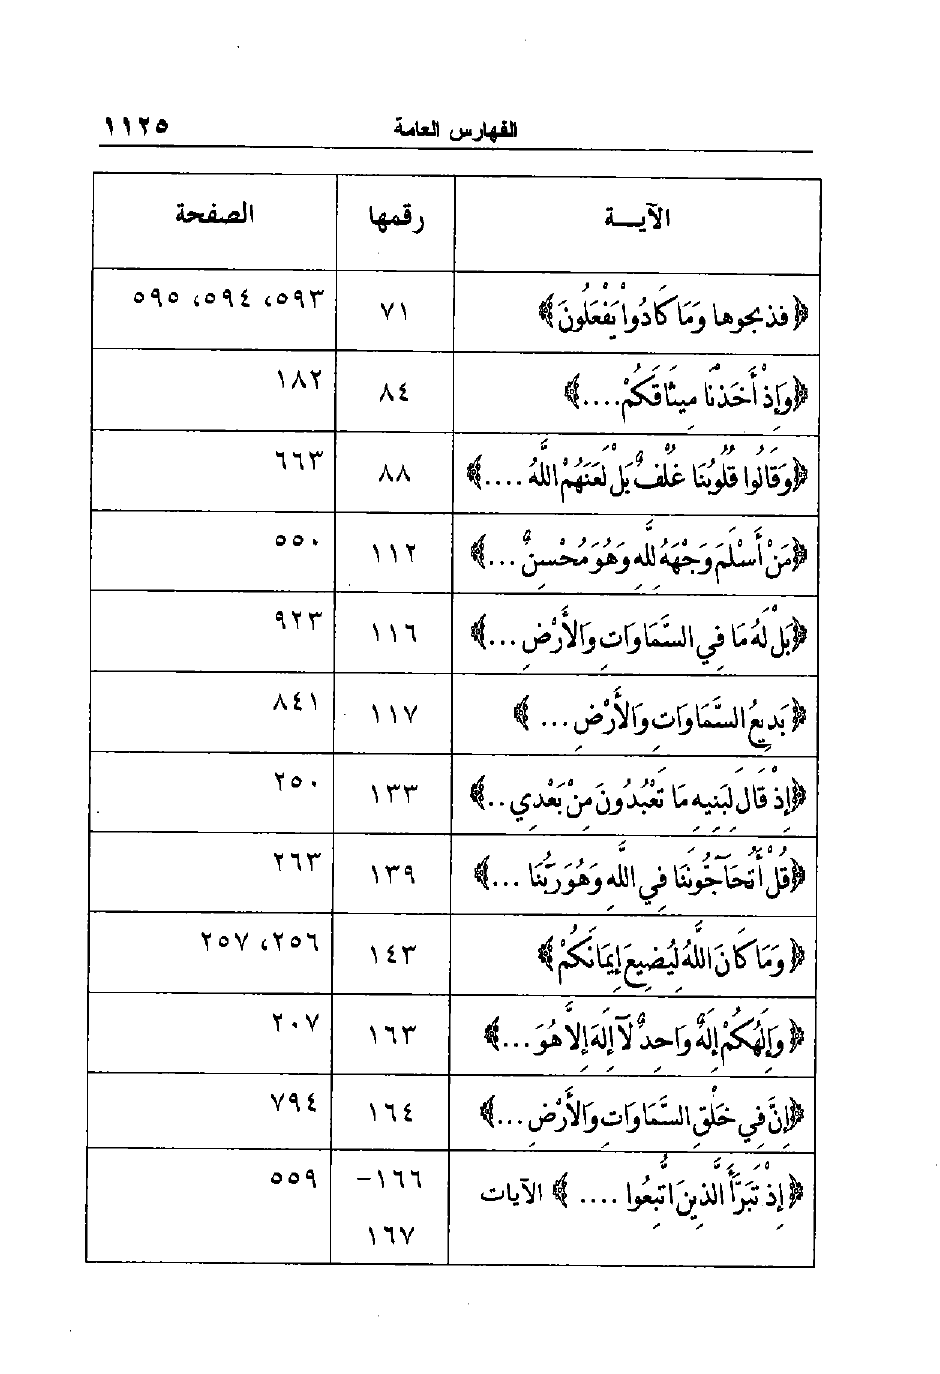 الفهارس العامة ١١٢٥
الآيــة رقمها الصفحة
﴿فذبحوها وَمَا كَادُواْ يَفْعَلُونَ﴾ ٧١ ٥٩٣، ٥٩٤، ٥٩٥
﴿وَإِذْ أَخَذْنَا مِيثَاقَكُمْ....﴾ ٨٤ ١٨٢
﴿وَقَالُوا قُلُوبُنَا غُلْفٌ بَلْ لَعَنَهُمْ اللَّهُ ....﴾ ٨٨ ٦٦٣
﴿مَنْ أَسْلَمَ وَجْهَهُ لِلَّهِ وَهُوَ مُحْسِنٌ ...﴾ ١١٢ ٥٥٠
﴿بَلْ لَهُ مَا فِي السَّمَاوَاتِ وَالأَرْضِ ...﴾ ١١٦ ٩٢٣
﴿بَدِيعُ السَّمَاوَاتِ وَالأَرْضِ ... ﴾ ١١٧ ٨٤١
﴿إِذْ قَالَ لِبَنِيهِ مَا تَعْبُدُونَ مِنْ بَعْدِي ..﴾ ١٣٣ ٢٥٠
﴿قُلْ أَتُحَآجُّونَنَا فِي اللَّهِ وَهُوَ رَبُّنَا ...﴾ ١٣٩ ٢٦٣
﴿وَمَا كَانَ اللَّهُ لِيُضِيعَ إِيمَانَكُمْ﴾ ١٤٣ ٢٥٦، ٢٥٧
﴿وَإِلَهُكُمْ إِلَهٌ وَاحِدٌ لَآ إِلَهَ إِلاَّ هُوَ ...﴾ ١٦٣ ٢٠٧
﴿إِنَّ فِي خَلْقِ السَّمَاوَاتِ وَالأَرْضِ ...﴾ ١٦٤ ٧٩٤
﴿إِذْ تَبَرَّأَ الَّذِينَ اتُّبِعُوا .... ﴾ الآيات ١٦٦- ٥٥٩
١٦٧